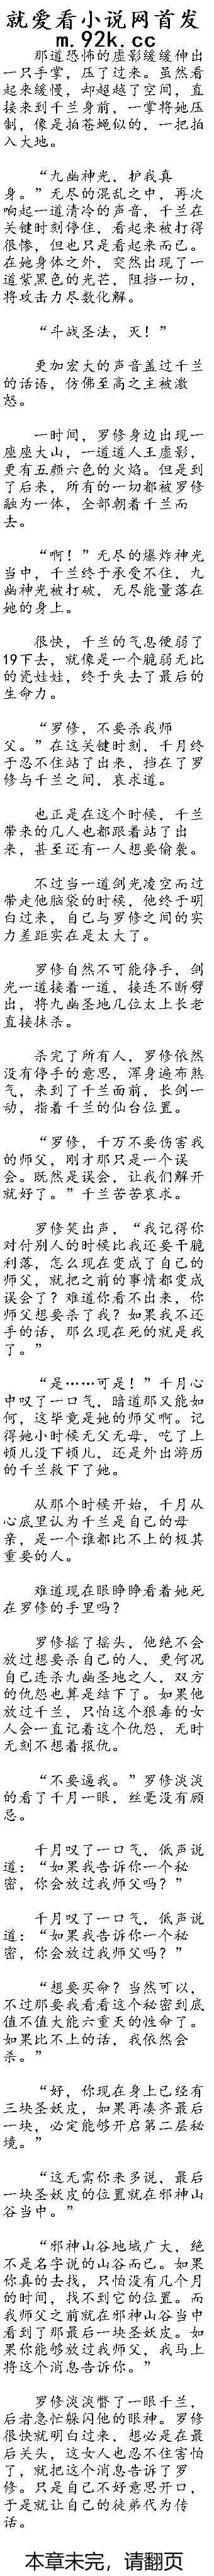 就爱看小说网首发
m.92k.cc
那道恐怖的虚影缓缓伸出
一只手掌，压了过来。虽然看
起来缓慢，却超越了空间，直
接来到千兰身前，一掌将她压
制，像是拍苍蝇似的，一把拍
入大地。
“九幽神光，护我真
身。”无尽的混乱之中，再次
响起一道清冷的声音，千兰在
关键时刻停住，看起来被打得
很惨，但也只是看起来而已。
在她身体之外，突然出现了一
道紫黑色的光芒，阻挡一切，
将攻击力尽数化解。
“斗战圣法，灭！”
更加宏大的声音盖过千兰
的话语，仿佛至高之主被激
怒。
一时间，罗修身边出现一
座座大山，一道道人王虚影，
更有五颜六色的火焰。但是到
了后来，所有的一切都被罗修
融为一体，全部朝着千兰而
去。
“啊！”无尽的爆炸神光
当中，千兰终于承受不住，九
幽神光被打破，无尽能量落在
她的身上。
很快，千兰的气息便弱了
19下去，就像是一个脆弱无比
的瓷娃娃，终于失去了最后的
生命力。
“罗修，不要杀我师
父。”在这关键时刻，千月终
于忍不住站了出来，挡在了罗
修与千兰之间，哀求道。
也正是在这个时候，千兰
带来的几人也都跟着站了出
来，甚至还有一人想要偷袭。
不过当一道剑光凌空而过
带走他脑袋的时候，他终于明
白过来，自己与罗修之间的实
力差距实在是太大了。
罗修自然不可能停手，剑
光一道接着一道，接连不断劈
出，将九幽圣地几位太上长老
直接抹杀。
杀完了所有人，罗修依然
没有停手的意思，浑身遍布煞
气，来到了千兰面前，长剑一
动，指着千兰的仙台位置。
“罗修，千万不要伤害我
的师父，刚才那只是一个误
会。既然是误会，让我们解开
就好了。”千兰苦苦哀求。
罗修笑出声，“我记得你
对付别人的时候比我还要干脆
利落，怎么现在变成了自己的
师父，就把之前的事情都变成
误会了？难道你看不出来，你
师父想要杀了我？如果我不还
手的话，那么现在死的就是我
了。”
“是……可是！”千月心
中叹了一口气，暗道那又能如
何，这毕竟是她的师父啊。记
得她小时候无父无母，吃了上
顿儿没下顿儿，还是外出游历
的千兰救下了她。
从那个时候开始，千月从
心底里认为千兰是自己的母
亲，是一个谁都比不上的极其
重要的人。
难道现在眼睁睁看着她死
在罗修的手里吗？
罗修摇了摇头，他绝不会
放过想要杀自己的人，更何况
自己连杀九幽圣地之人，双方
的仇怨也算是结下了。如果他
放过千兰，只怕这个狠毒的女
人会一直记着这个仇怨，无时
无刻不想着报仇。
“不要逼我。”罗修淡淡
的看了千月一眼，丝毫没有顾
忌。
千月叹了一口气，低声说
道：“如果我告诉你一个秘
密，你会放过我师父吗？”
千月叹了一口气，低声说
道：“如果我告诉你一个秘
密，你会放过我师父吗？”
“想要买命？当然可以，
不过那要我看看这个秘密到底
值不值大能六重天的性命了。
如果比不上的话，我依然会
杀。”
“好，你现在身上已经有
三块圣妖皮，如果再凑齐最后
一块，必定能够开启第二层秘
境。”
“这无需你来多说，最后
一块圣妖皮的位置就在邪神山
谷当中。”
“邪神山谷地域广大，绝
不是名字说的山谷而已。如果
你真的去找，只怕没有几个月
的时间，找不到它的位置。而
我师父之前就在邪神山谷当中
看到了那最后一块圣妖皮。如
果你能够放过我师父，我马上
将这个消息告诉你。”
罗修淡淡瞥了一眼千兰，
后者急忙躲闪他的眼神。罗修
很快就明白过来，想必是在最
后关头，这女人也忍不住害怕
了，就把这个消息告诉了罗
修。只是自己不好意思开口，
于是就让自己的徒弟代为传
话。
本章未完，请翻页